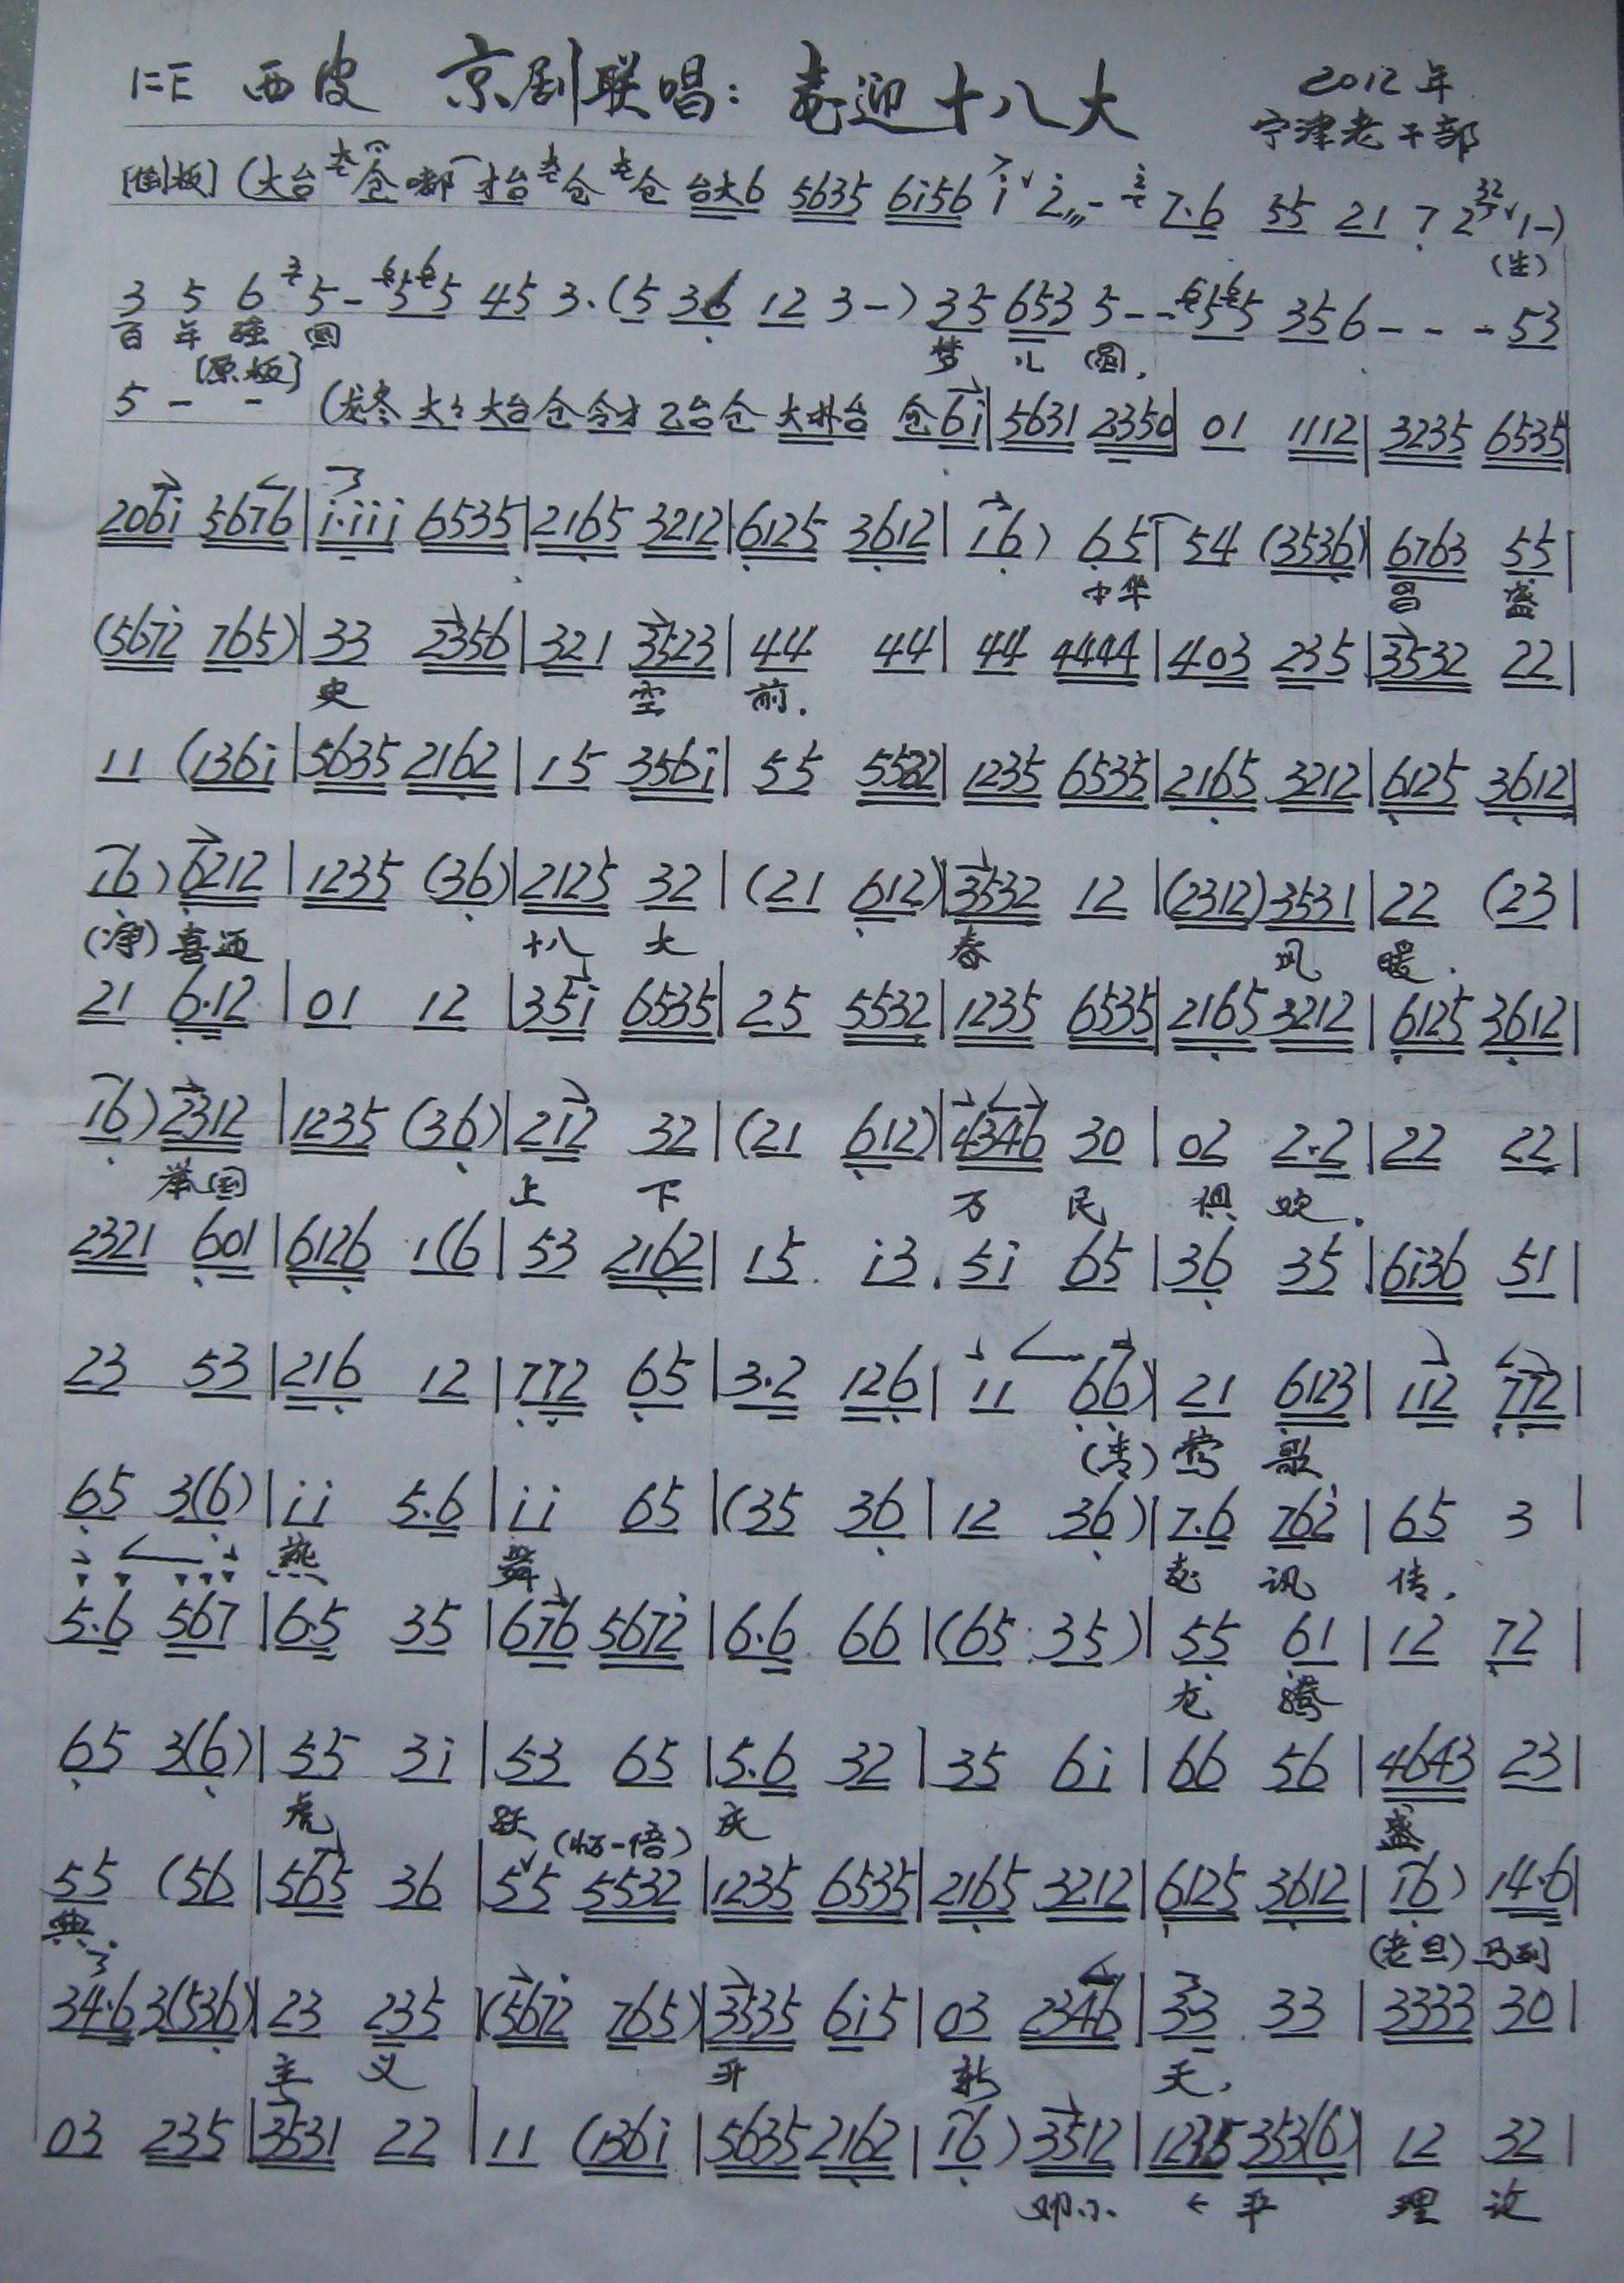 1=E 西皮 京剧联唱：喜迎十八大 2012年
宁津老干部
[倒板] (大台 仓 嘟 才台 仓 仓 台大6 5635 6i56 i 2 - 7.6 55 21 7 2 1-)
(生)
3 5 6 5- 55 45 3.(5 36 12 3-) 35 653 5-- 55 356--- 53
百年强国 梦儿圆，
[原板]
5 - - (龙冬 大大 大台 仓 令才 乙台 仓 大扑台 仓6i|5631 2350|01 1112|3235 6535|
206i 5676|i.iii 6535|2165 3212|6125 3612|i6) 65|54 (3536)|6763 55|
中华 昌 盛
(5672 765)|33 2356|321 3523|44 44|44 4444|403 235|3532 22|
史 空 前.
11 (136i|5635 2162|15 356i|55 5532|1235 6535|2165 3212|6125 3612|
i6) 6212|1235 (36)|2125 32|(21 612)|3532 12|(2312)3531|22 (23|
(净)喜迎 十八 大 春 风 暖.
21 6.12|01 12|35i 6535|25 5532|1235 6535|2165 3212|6125 3612|
i6) 2312|1235 (36)|212 32|(21 612)|4346 30|02 2.2|22 22|
举国 上 下 万 民 俱 欢.
2321 601|6126 1(6|53 2162|15 i3|5i 65|36 35|6i36 51|
23 53|216 12|772 65|3.2 126|11 66)|21 6123|112 772|
(青) 莺 歌
65 3(6)|ii 5.6|ii 65|(35 36|12 36)|7.6 762|65 3|
燕 舞 喜 讯 传.
5.6 567|6.5 35|676 5672|6.6 66|(65 35)|55 61|12 72|
龙 腾
65 3(6)|55 3i|53 65|5.6 32|35 6i|66 56|4643 23|
虎 跃 庆 盛
(快一倍)
55 (56|565 36|55 5532|1235 6535|2165 3212|6125 3612|i6) 14.6|
典. (老旦)马列
34.6 3(536)|23 235|(5672 765)|3535 6i5|03 2346|33 33|3333 30|
主 义 开 新 天，
03 235|3531 22|11 (136i|5635 2162|i6) 3512|1235 353(6)|12 32|
邓小 平 理 论